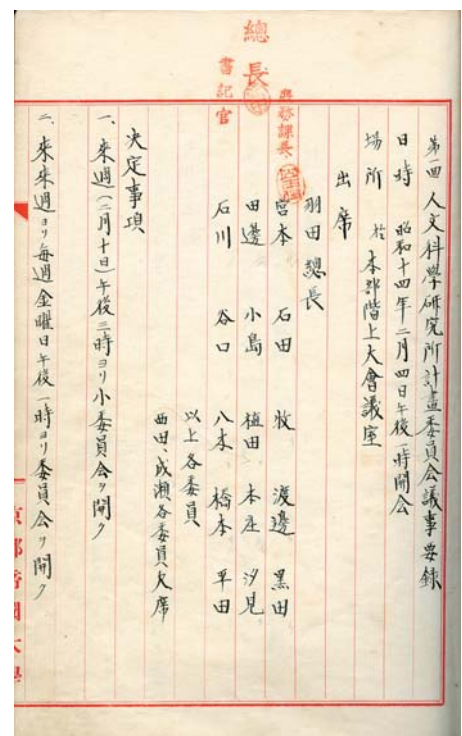 總長
書記官
庶務課長
第一回人文科學研究所計畫委員会議事要録
日時 昭和十四年二月四日午後一時開会
場所 於本部階上大會議室
出席
羽田總長
宮本 石田 牧 渡邊 黒田
田邊 小島 植田 本庄 汐見
石川 谷口 八木 橋本 平田
以上各委員
西田、成瀬各委員欠席
决定事項
一、來週(二月十日)午後三時ヨリ小委員会ヲ開ク
二、來來週ヨリ毎週金曜日午後一時ヨリ委員会ヲ開ク
京都帝國大學